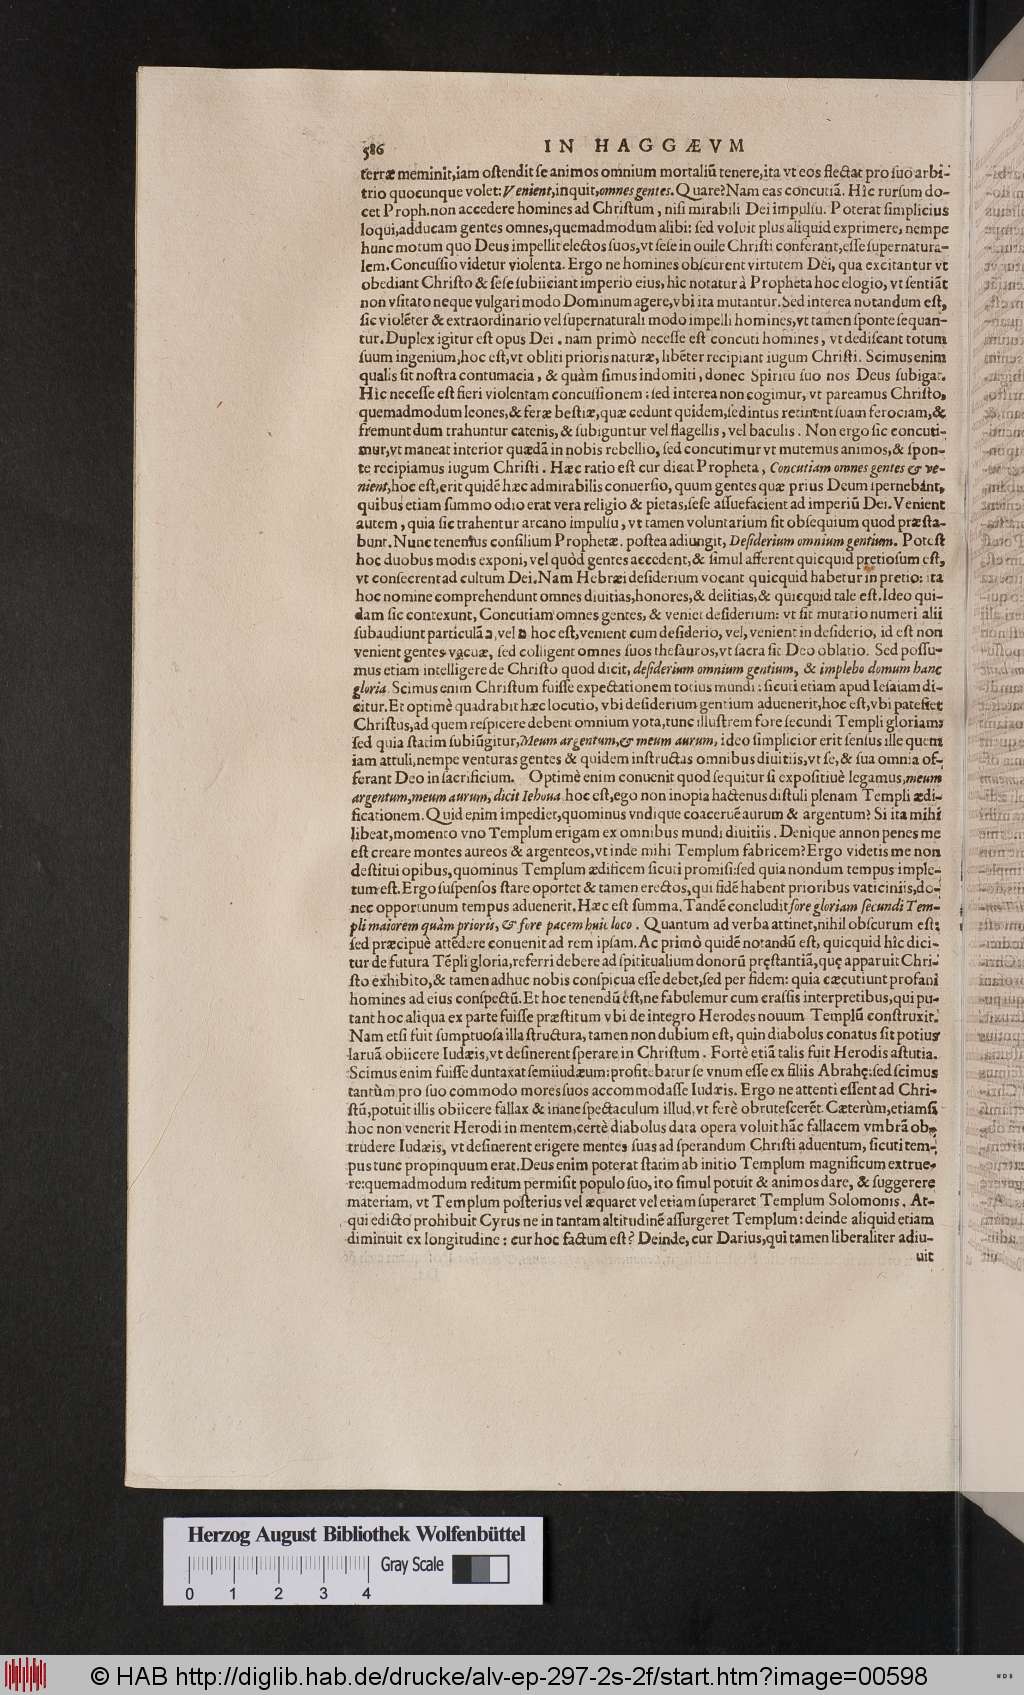 586 IN HAGGÆVM
terræ meminit,iam oſtendit ſe animos omnium mortaliũ tenere,ita vt eos flectat pro ſuo arbi-
trio quocunque volet: Venient,inquit,omnes gentes. Quare?Nam eas concutiã. Hîc rurſum do-
cet Proph.non accedere homines ad Chriſtum, niſi mirabili Dei impulſu. Poterat ſimplicius
loqui,adducam gentes omnes,quemadmodum alibi: ſed voluit plus aliquid exprimere, nempe
hunc motum quo Deus impellit electos ſuos,vt ſeſe in ouile Chriſti conferant,eſſe ſupernatura-
lem.Concuſſio videtur violenta. Ergo ne homines obſcurent virtutem Dei, qua excitantur vt
obediant Chriſto & ſeſe ſubiiciant imperio eius, hic notatur à Propheta hoc elogio, vt ſentiãt
non vſitato neque vulgari modo Dominum agere,vbi ita mutantur.Sed interea notandum eſt,
ſic violẽter & extraordinario vel ſupernaturali modo impelli homines,vt tamen ſponte ſequan-
tur.Duplex igitur eſt opus Dei . nam primò neceſſe eſt concuti homines, vt dediſcant totum
ſuum ingenium,hoc eſt,vt obliti prioris naturæ, libẽter recipiant iugum Chriſti. Scimus enim
qualis ſit noſtra contumacia, & quàm ſimus indomiti, donec Spiritu ſuo nos Deus ſubigat.
Hic neceſſe eſt fieri violentam concuſſionem : ſed interea non cogimur, vt pareamus Chriſto,
quemadmodum leones,& feræ beſtiæ,quæ cedunt quidem,ſed intus retinent ſuam ferociam,&
fremunt dum trahuntur catenis, & ſubiguntur vel flagellis, vel baculis. Non ergo ſic concuti-
mur,vt maneat interior quædã in nobis rebellio, ſed concutimur vt mutemus animos,& ſpon-
te recipiamus iugum Chriſti. Hæc ratio eſt cur dicat Propheta, Concutiam omnes gentes & ve-
nient,hoc eſt,erit quidẽ hæc admirabilis conuerſio, quum gentes quæ prius Deum ſpernebãnt,
quibus etiam ſummo odio erat vera religio & pietas,ſeſe aſſuefacient ad imperiũ Dei. Venient
autem, quia ſic trahentur arcano impulſu, vt tamen voluntarium ſit obſequium quod præſta-
bunt. Nunc tenemus conſilium Prophetæ. poſtea adiungit, Deſiderium omnium gentium. Poteſt
hoc duobus modis exponi, vel quòd gentes accedent,& ſimul afferent quicquid pretioſum eſt,
vt conſecrent ad cultum Dei.Nam Hebræi deſiderium vocant quicquid habetur in pretio: ita
hoc nomine comprehendunt omnes diuitias,honores,& delitias,& quicquid tale eſt.Ideo qui-
dam ſic contexunt, Concutiam omnes gentes, & veniet deſiderium: vt ſit mutatio numeri alii
ſubaudiunt particulã ב,vel מ hoc eſt,venient cum deſiderio, vel, venient in deſiderio, id eſt non
venient gentes vacuæ, ſed colligent omnes ſuos theſauros,vt ſacra ſit Deo oblatio. Sed poſſu-
mus etiam intelligere de Chriſto quod dicit, deſiderium omnium gentium, & implebo domum hanc
gloria. Scimus enim Chriſtum fuiſſe expectationem totius mundi: ſicuti etiam apud Ieſaiam di-
citur.Et optimè quadrabit hæc locutio, vbi deſiderium gentium aduenerit,hoc eſt,vbi patefiet
Chriſtus,ad quem reſpicere debent omnium vota,tunc illuſtrem fore ſecundi Templi gloriam:
ſed quia ſtatim ſubiũgitur, Meum argentum,& meum aurum, ideo ſimplicior erit ſenſus ille quem
iam attuli,nempe venturas gentes & quidem inſtructas omnibus diuitiis, vt ſe, & ſua omnia of-
ferant Deo in ſacrificium. Optimè enim conuenit quod ſequitur ſi expoſitiuè legamus,meum
argentum,meum aurum, dicit Iehoua hoc eſt,ego non inopia hactenus diſtuli plenam Templi ædi-
ficationem.Quid enim impediet,quominus vndique coaceruẽ aurum & argentum? Si ita mihi
libeat,momento vno Templum erigam ex omnibus mundi diuitiis. Denique annon penes me
eſt creare montes aureos & argenteos,vt inde mihi Templum fabricem?Ergo videtis me non
deſtitui opibus,quominus Templum ædificem ſicuti promiſi:ſed quia nondum tempus imple-
tum eſt.Ergo ſuſpenſos ſtare oportet & tamen erectos,qui fidẽ habent prioribus vaticiniis,do-
nec opportunum tempus aduenerit. Hæc eſt ſumma. Tandẽ concludit fore gloriam ſecundi Tem-
pli maiorem quàm prioris, & fore pacem huic loco. Quantum ad verba attinet,nihil obſcurum eſt:
ſed præcipuè attẽdere conuenit ad rem ipſam. Ac primò quidẽ notandũ eſt, quicquid hîc dici-
tur de futura Tẽpli gloria,referri debere ad ſpiritualium donorũ pręſtantiã,quę apparuit Chri-
ſto exhibito,& tamen adhuc nobis conſpicua eſſe debet,ſed per fidem: quia cæcutiunt profani
homines ad eius conſpectũ.Et hoc tenendũ eſt,ne fabulemur cum craſſis interpretibus,qui pu-
tant hoc aliqua ex parte fuiſſe præſtitum vbi de integro Herodes nouum Templũ conſtruxit.
Nam etſi fuit ſumptuoſa illa ſtructura, tamen non dubium eſt, quin diabolus conatus ſit potius
laruã obiicere Iudæis,vt deſinerent ſperare in Chriſtum. Fortè etiã talis fuit Herodis aſtutia.
Scimus enim fuiſſe duntaxat ſemiiudæum:profitebatur ſe vnum eſſe ex filiis Abrahę:ſed ſcimus
tantùm pro ſuo commodo mores ſuos accommodaſſe Iudæis. Ergo ne attenti eſſent ad Chri-
ſtũ,potuit illis obiicere fallax & inane ſpectaculum illud,vt ferè obruteſcerẽt. Cæterùm,etiamſi
hoc non venerit Herodi in mentem,certè diabolus data opera voluit hãc fallacem vmbrã ob-
trudere Iudæis, vt deſinerent erigere mentes ſuas ad ſperandum Chriſti aduentum, ſicuti tem-
pus tunc propinquum erat.Deus enim poterat ſtatim ab initio Templum magnificum extrue-
re:quemadmodum reditum permiſit populo ſuo, ito ſimul potuit & animos dare, & ſuggerere
materiam, vt Templum poſterius vel æquaret vel etiam ſuperaret Templum Solomonis. At-
qui edicto prohibuit Cyrus ne in tantam altitudinẽ aſſurgeret Templum: deinde aliquid etiam
diminuit ex longitudine: cur hoc factum eſt? Deinde, cur Darius,qui tamen liberaliter adiu-
uit
Herzog August Bibliothek Wolfenbüttel
Gray Scale
0 1 2 3 4
© HAB http://diglib.hab.de/drucke/alv-ep-297-2s-2f/start.htm?image=00598